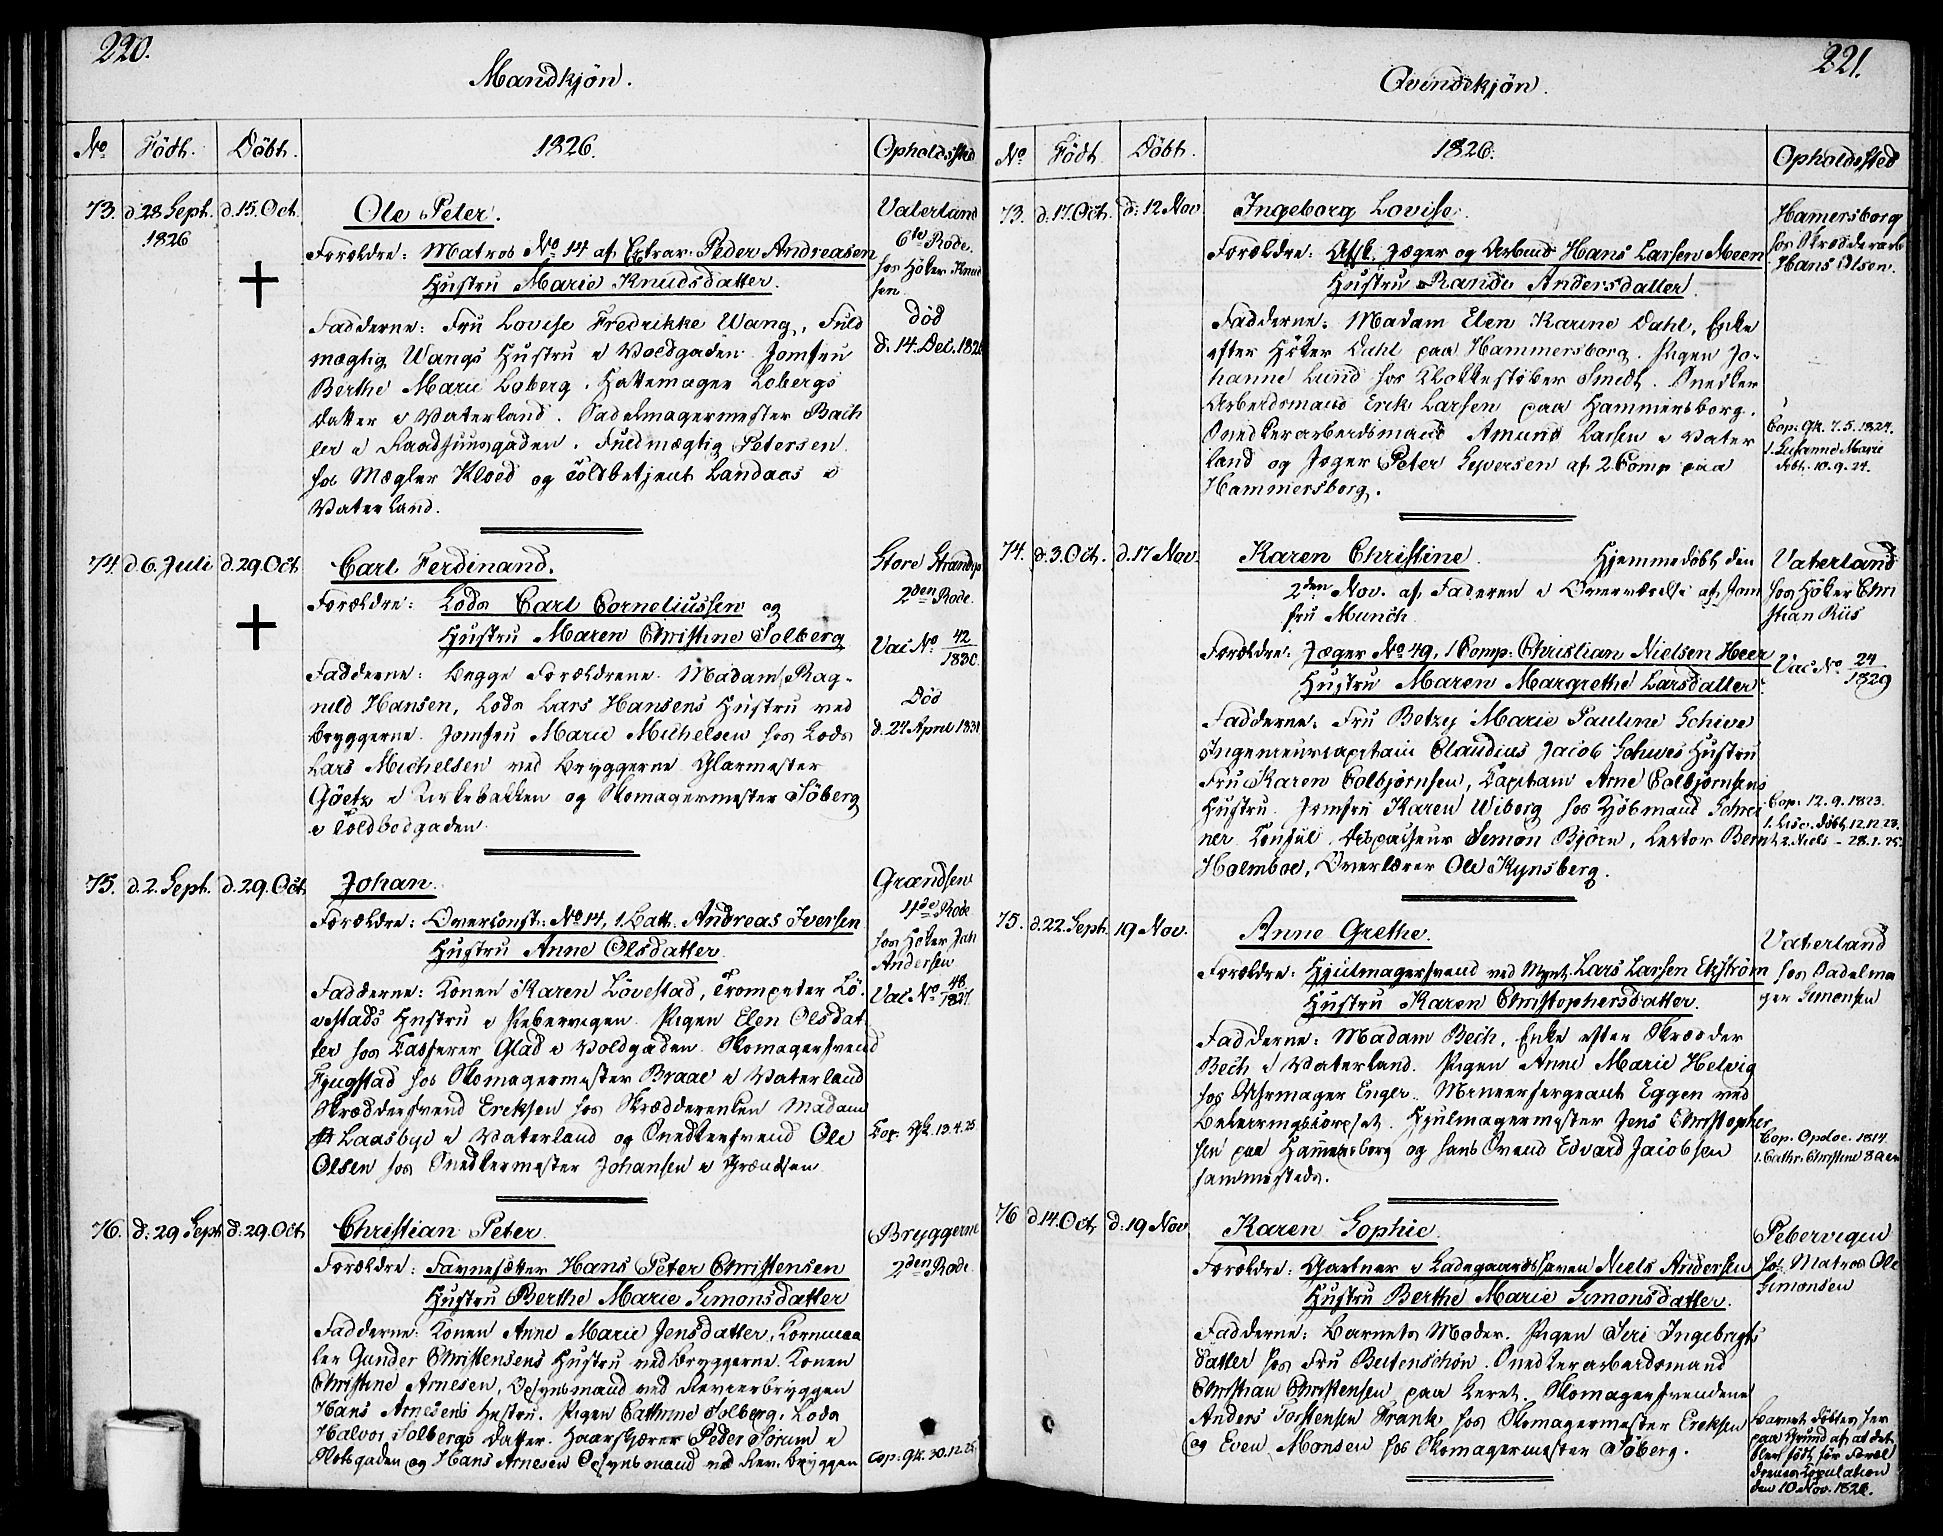 220.
Mandkjøn.
No Födt. Döbt. 1826. Opholdssted
73. d. 28 Sept. 1826 d. 15. Oct. Ole Peter.
Forældre: Matros No 14 af Extrar. Peder Andreasen
Hustru Marie Knudsdatter.
Fadderne: Fru Lovise Fredrikke Wang, Fuld
mægtig Wangs Hustru i Voldgaden. Jomfru
Berthe Marie Loberg, Hattemager Lobergs
Datter i Vaterland. Sadelmagermester Bach
ler i Raadhuusgaden. Fuldmægtig Petersen
hos Mægler Kloed og Toldbetjent Landaas i
Vaterland.
Vaterland
6te Rode.
hos Höker Knud
sen.
död
d. 14. Dec. 1826
74. d. 6. Juli d. 29 Oct. Carl Ferdinand.
Forældre: Lods Carl Corneliussen og
Hustru Maren Christine Solberg
Fadderne: begge Forældrene. Madam Rag-
nild Hansen, Lods Lars Hansens Hustru ved
bryggerne. Jomfru Marie Michelsen hos Lods
Lars Michelsen ved Bryggerne Glarmester
Göetz i Kirkebakken og Skomagermester Söberg
i Toldbodgaden.
Store Strandg
2den Rode.
Vac No 42/1830.
Död
d. 27 April 1831
75. d. 2. Sept. d. 29. Oct. Johan.
Forældre: Overconst: No 14, 1. Batt. Andreas Iversen
Hustru Anne Olsdatter.
Fadderne: Konen Karen Lövestad, Trompeter Lö-
vestads Hustru i Pebervigen. Pigen Elen Olsdat
ter hos Casserer Glad i Voldgaden. Skomagersvend
Fjugstad hos Skomagermester Braae i Vaterland
Skræddersvend Ericksen hos Skrædderenken Madam
Laasbye i Vaterland og Snedkersvend Ole
Olsen hos Snedkermester Johansen i Grændsen.
Grændsen
4de Rode
hos Höker Joh
Andersen
Vac No 48/1827.
Cop. Gk. 13.4.25
76. d. 29 Sept. d. 29. Oct. Christian Peter.
Forældre: Favnesætter Hans Peter Christensen
Hustru Berthe Marie Simonsdatter
Fadderne: Konen Anne Marie Jensdatter, Kornmaa
ler Gunder Christensens Hustru ved bryggerne. Konen
Christine Arnesen, Opsynsmand ved Revierbryggen
Hans Arnesens Hustru. Pigen Cathrine Solberg, Lods
Halvor Solbergs datter. Haarskjærer Peder Sörum i
Slotsgaden og Hans Arnesen Opsynsmand ved Rev. bryggen
Bryggerne
2den Rode.
Cop: Gk. 30.12.25.
221.
Qvindekjön.
No Födt Döbt. 1826. Opholdssted
73. d. 17. Oct. d. 12 Nov. Ingeborg Lovise.
Forældre: Afsk. Jæger og Arbmd Hans Larsen Meen
Hustru Rande Andersdatter.
Fadderne: Madam Elen Karine Dahl, Enke
efter Höker Dahl paa Hammersborg. Pigen Jo-
hanne Lund hos Klokkestöber Smedt. Snedker
Arbeidsmand Erik Larsen paa Hammersborg.
Snedkerarbeidsmand Amund Larsen i Vater
land og Jæger Peter Seversen af 2 Comp paa
Hammersborg.
Hamersborg
hos Skrædderarb
Hans Olsen.
Cop: Gk. 7.5.1824.
1. Susanne Marie
döbt. 10.9.24.
74. d. 3. Oct. d. 17 Nov. Karen Christine. Hjemmedöbt den
2den Nov. af Faderen i Overværelse af Jom
fru Munch.
Forældre: Jæger No 49, 1 Comp: Christian Nielsen Heer
Hustru Maren Margrethe Larsdatter.
Fadderne: Fru Betzy Marie Pauline Schive
Ingenieurcapitain Claudius Jacob Schives Hustru
Fru Karen Colbjørnsen, Capitain Arne Colbjørnsens
Hustru. Jomfru Karen Wiberg hos Kjöbmand Schrei
ner. Consul, Dispacheur Simon Bjørn, Lector Bernt
Holmboe, Overlærer Ole Kynsberg.
Vaterland
hos Höker Chri
stian Riis
Vac No 24/1829
Cop: 12.9.1823.
1. Lise. döbt. 12.12.23.
2. Niels - 28.1.25.
75. d. 22. Sept. 19 Nov. Anne Grethe.
Forældre: Hjulmagersvend ved Mynt. Lars Larsen Ekström
Hustru Karen Christophersdatter.
Fadderne: Madam Bech, Enke efter Skrædder
Bech i Vaterland. Pigen Anne Marie Helvig
hos Uhrmager Enger. Mineersergeant Eggen ved
Hjulmagermester Jens Christopher
sen paa Hammersborg og hans Svend Edvard Jacobsen
sammesteds.
Vaterland
hos Sadelma
ger Simonsen
Cop. Opsloe. 1817.
1. Cathr. Christine 8 aar
76 d. 14. Oct. d. 19 Nov. Karen Sophie.
Forældre: Gartner i Ladegaardshaven Niels Andersen
Hustru Berthe Marie Simonsdatter.
Fadderne: Barnets Moder. Pigen Siri Ingebrigts
datter hos Fru Beitenschøn. Snedkerarbeidsmand
Christian Christensen paa Leret. Skomagersvendene
Anders Torstensen Frank hos Skomagermester Ericksen
og Even Monsen hos Skomagermester Söberg.
Pebervigen
hos Matros Ole
Simonsen
Barnet döbtes her
paa Grund af at det
blev födt för Foræl
drenes Copulation
den 10 Nov. 1826.